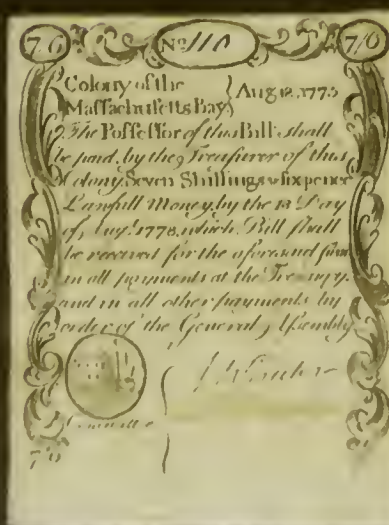 7/6 No 110 7/6
Colony of the
Maſſachuſetts Bay } Aug 18, 1775
The Poſſeſſor of this Bill ſhall
be paid, by the Treaſurer of this
Colony, Seven Shillings & ſixpence
Lawfull Money, by the 18 Day
of Augt 1778. which Bill ſhall
be received for the aforesaid ſum
in all payments at the Treaſury
and in all other payments by
order of the General Aſſembly
Committee
7/6